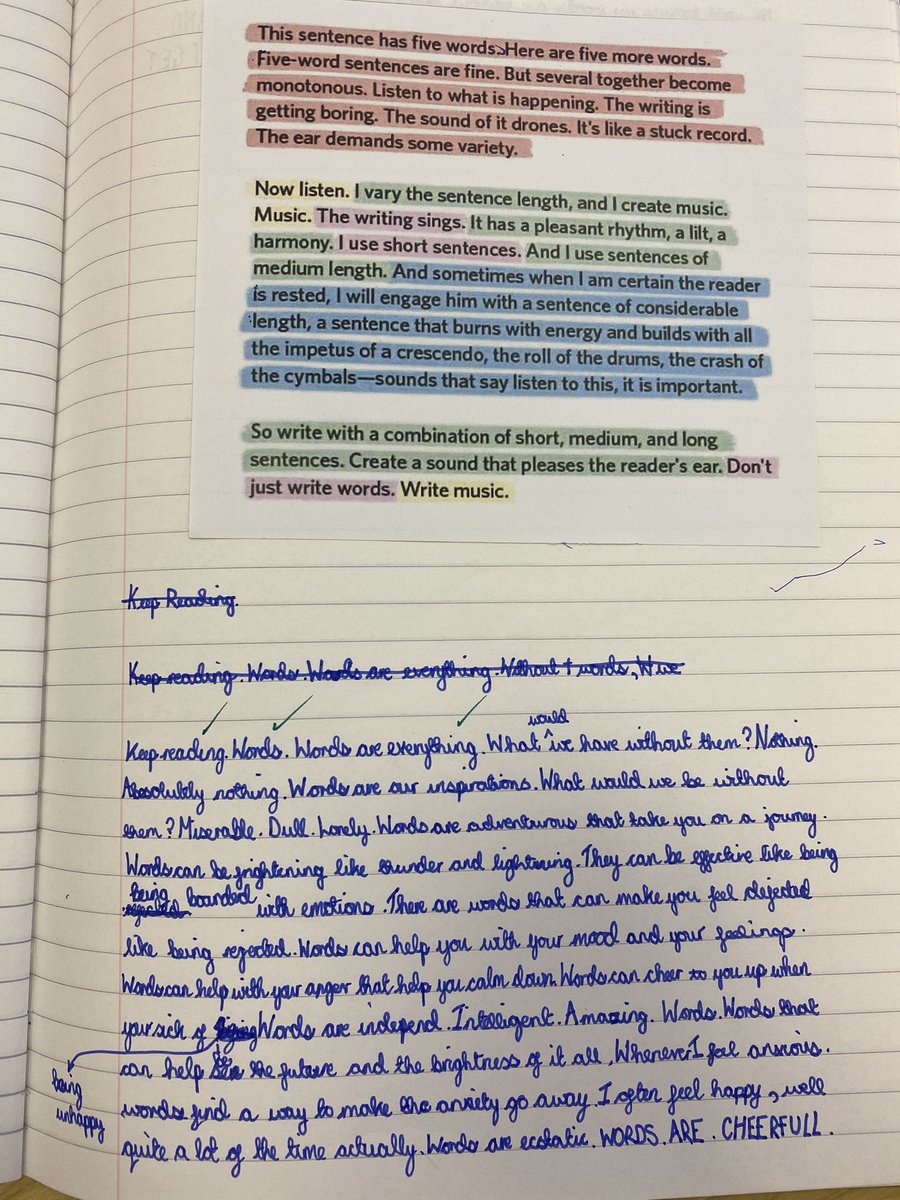 This sentence has five words. Here are five more words.
Five-word sentences are fine. But several together become
monotonous. Listen to what is happening. The writing is
getting boring. The sound of it drones. It's like a stuck record.
The ear demands some variety.
Now listen. I vary the sentence length, and I create music.
Music. The writing sings. It has a pleasant rhythm, a lilt, a
harmony. I use short sentences. And I use sentences of
medium length. And sometimes when I am certain the reader
is rested, I will engage him with a sentence of considerable
length, a sentence that burns with energy and builds with all
the impetus of a crescendo, the roll of the drums, the crash of
the cymbals—sounds that say listen to this, it is important.
So write with a combination of short, medium, and long
sentences. Create a sound that pleases the reader's ear. Don't
just write words. Write music.
Keep Reading.
Keep reading. Words. Words are everything. Without words, W we
would
Keep reading. Words. Words are everything. What we have without them? Nothing.
Absolutely nothing. Words are our inspirations. What would we be without
them? Miserable. Dull. Lonely. Words are adventurous that take you on a journey.
Words can be frightening like thunder and lightning. They can be effective like being
being bounded with emotions. There are words that can make you feel dejected
like being rejected. Words can help you with your mood and your feelings.
Words can help with your anger that help you calm down. Words can cheer to you up when
your sick of Words are independ. Intelligent. Amazing. Words. Words that
can help the future and the brightness of it all. Whenever I feel anxious.
being
unhappy
words find a way to make the anxiety go away. I often feel happy, well
quite a lot of the time actually. Words are ecstatic. WORDS. ARE. CHEERFULL.